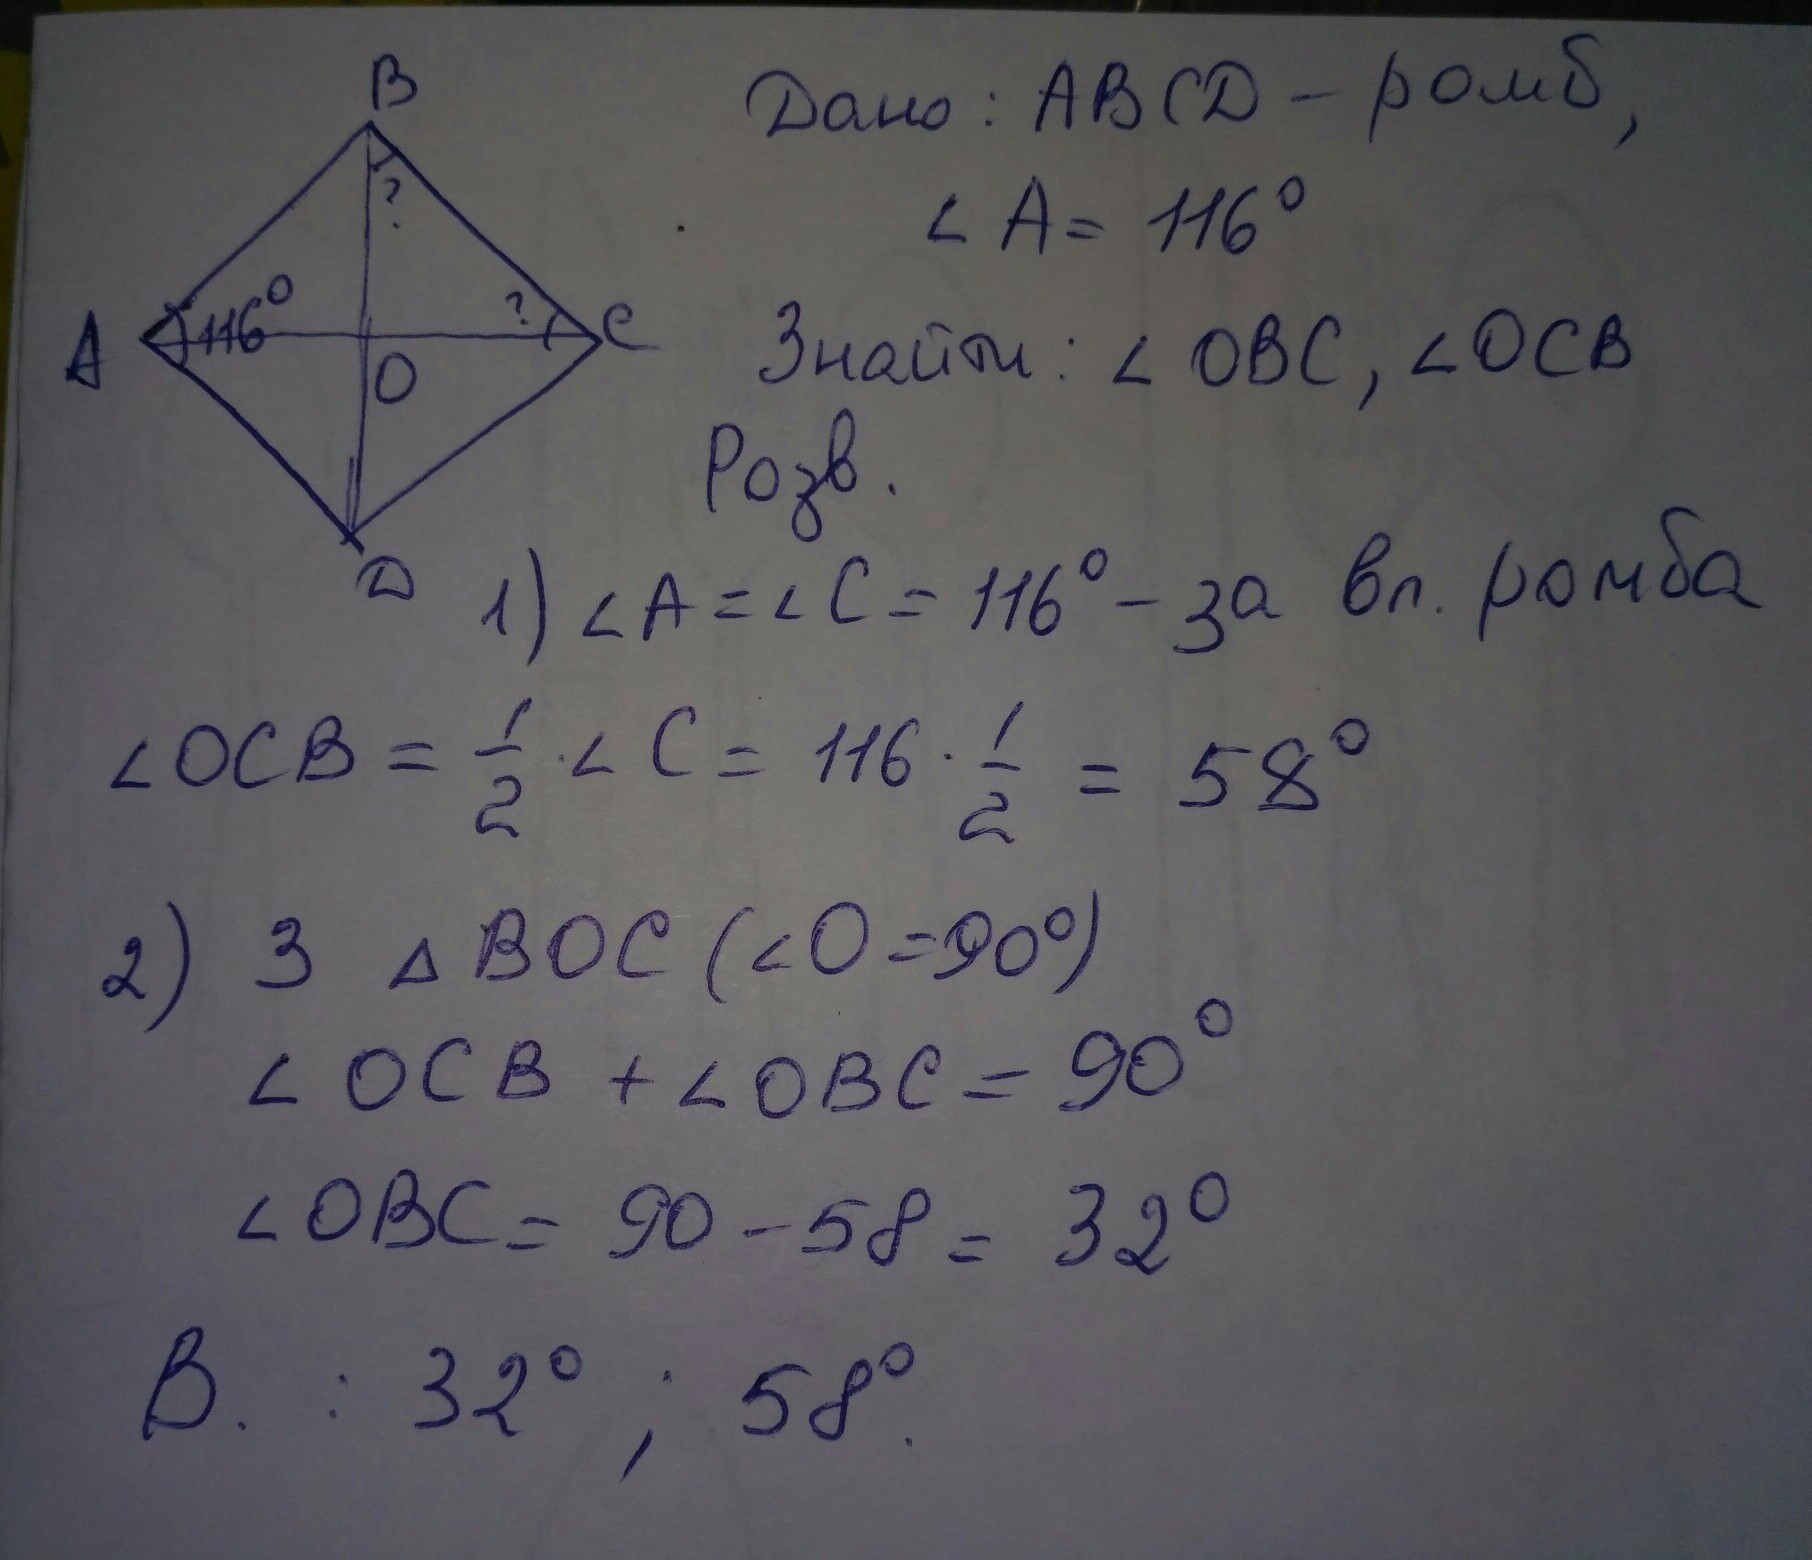 B
A
116°
?
?
C
O
D
Дано: ABCD – ромб,
∠A = 116°
Знайти: ∠OBC, ∠OCB
Розв.
1) ∠A = ∠C = 116° – за вл. ромба
∠OCB = 1/2 · ∠C = 116 · 1/2 = 58°
2) З △BOC (∠O = 90°)
∠OCB + ∠OBC = 90°
∠OBC = 90 – 58 = 32°
В. : 32° ; 58°.